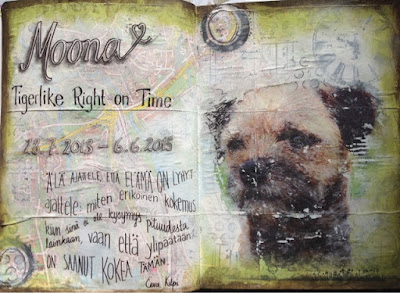 Moona
Tigerlike Right on Time
6.6.2015
ÄLÄ AJATTELE, ETTÄ ELÄMÄ ON LYHYT
ajattele, miten erikoinen kokemus
kun siinä ei ole kysymys pituudesta
lainkaan, vaan että ylipäätään
ON SAANUT KOKEA TÄMÄN.